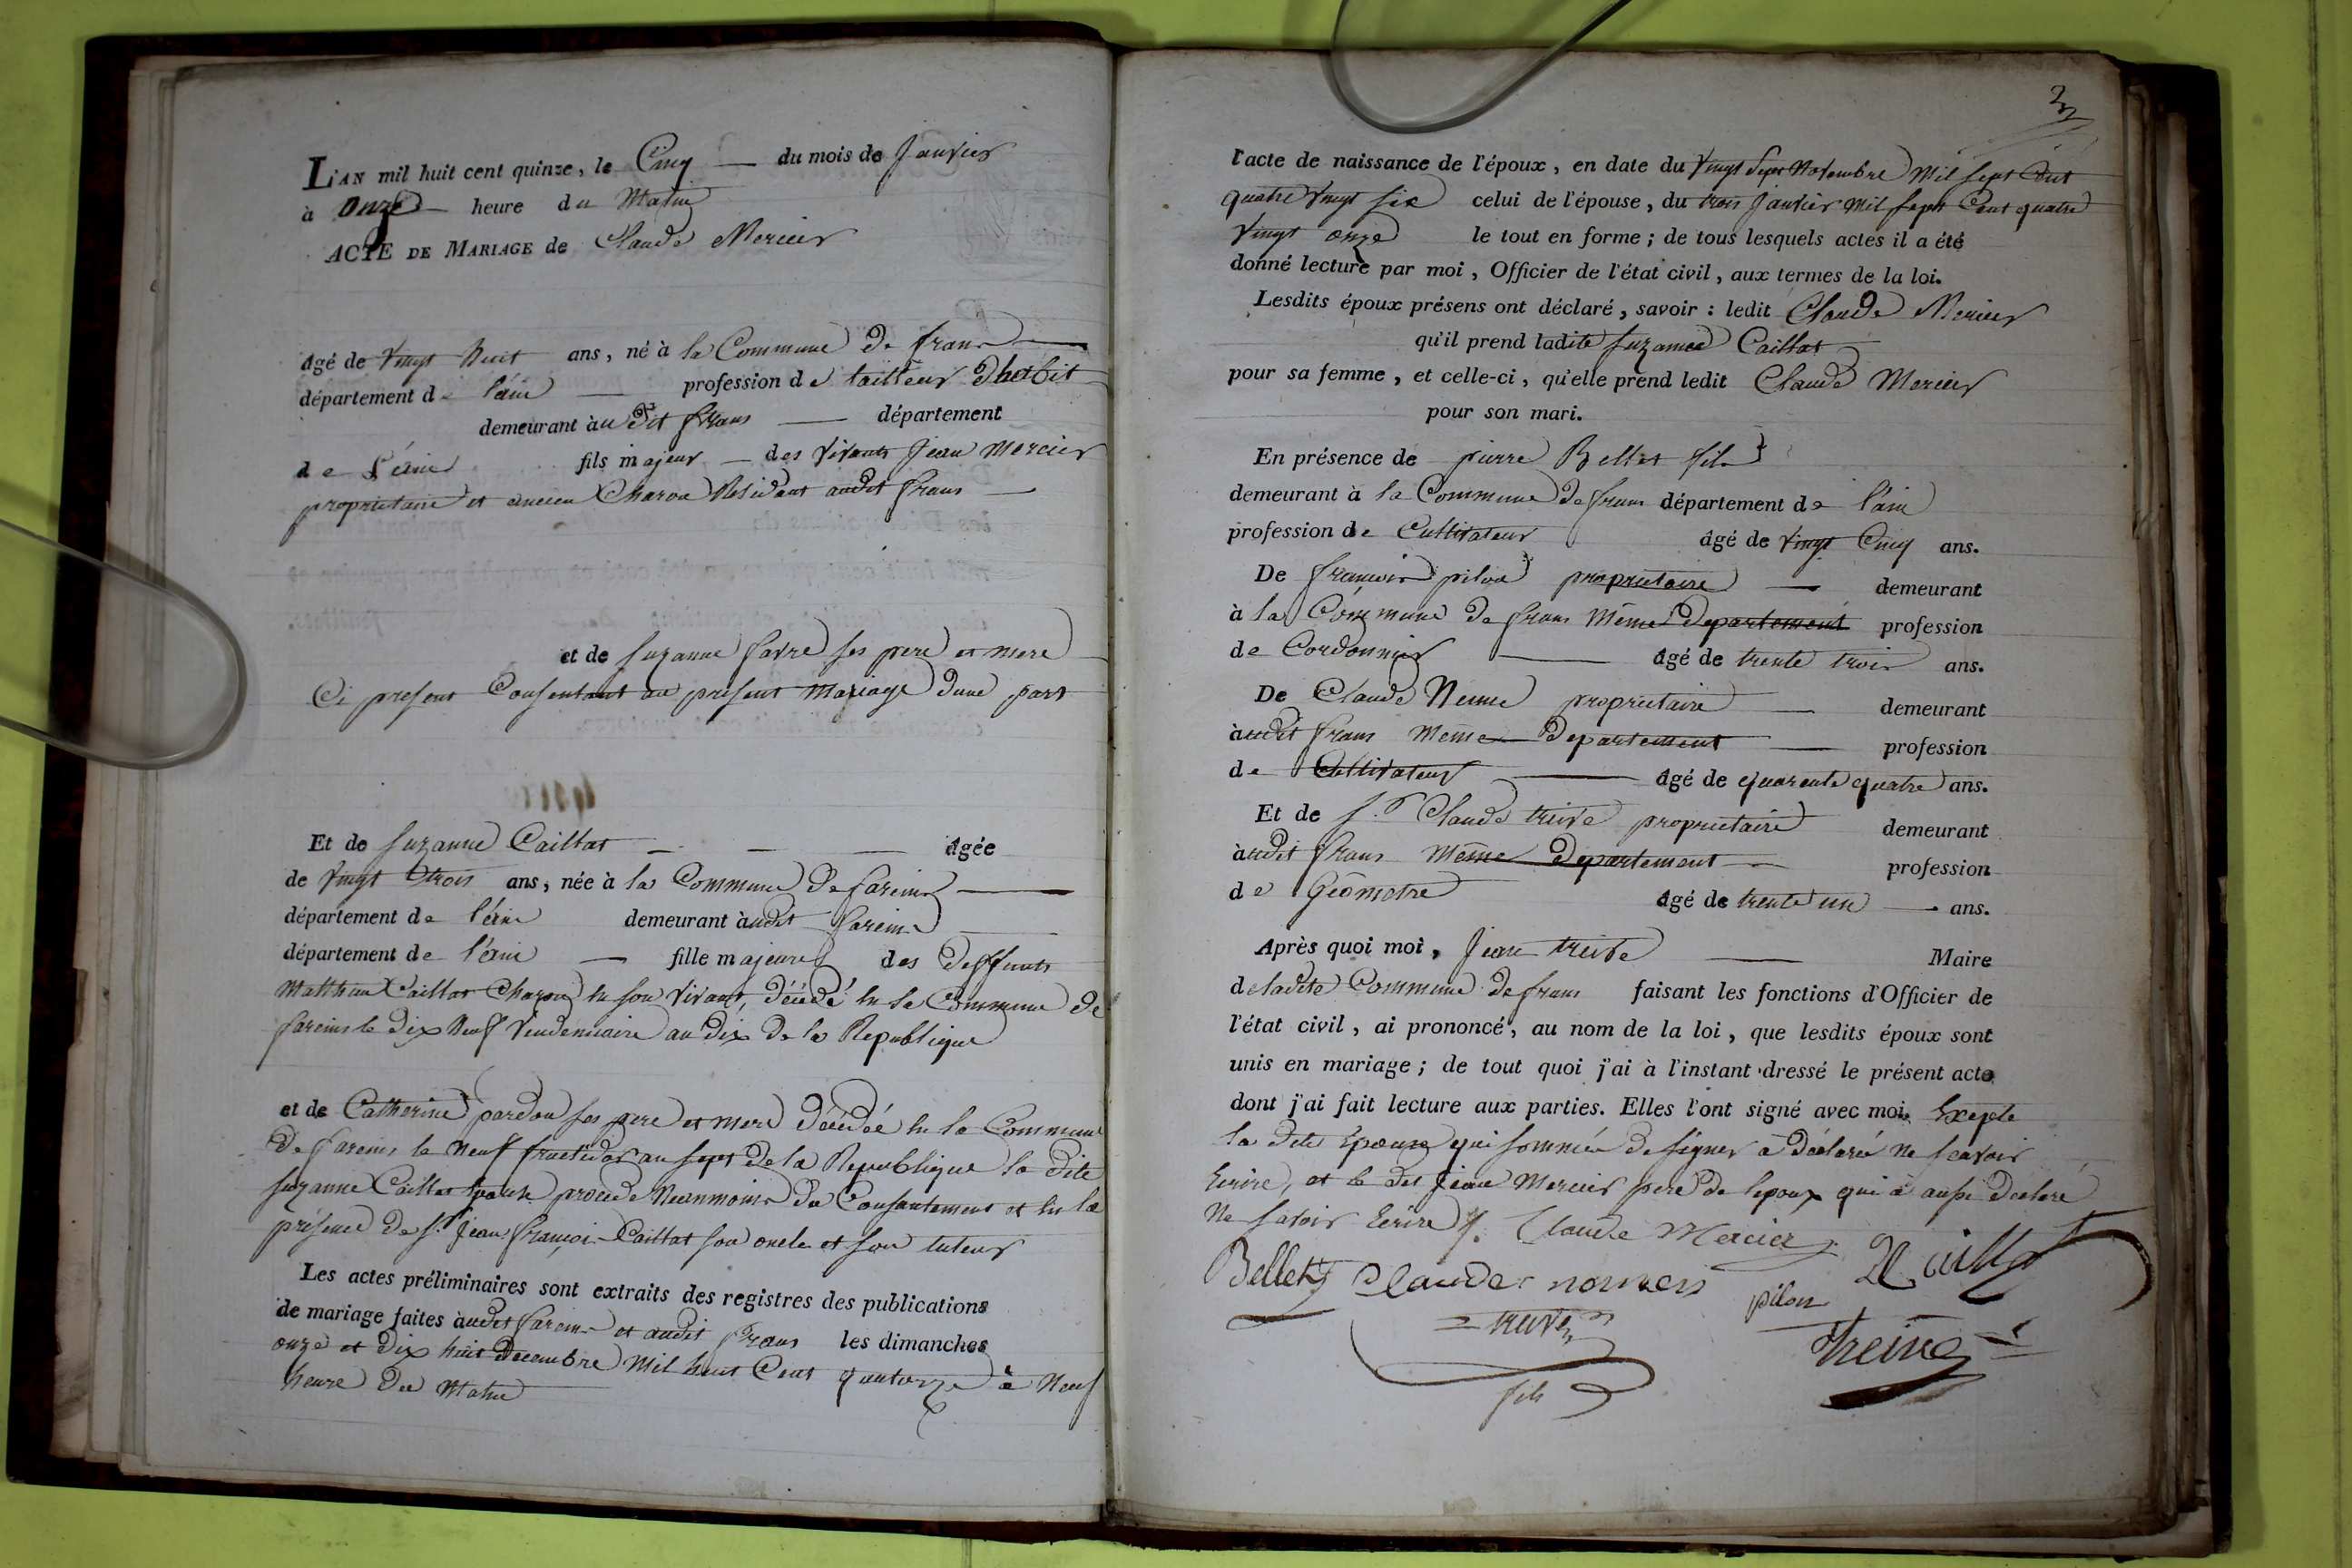 L'AN mil huit cent quinze, le Cinq — du mois de Janvier
à Onze — heure du Matin
ACTE DE MARIAGE de Claude Mercier
âgé de Vingt huit ans, né à la Commune de frans —
département de l'ain — profession de tailleur dhabit
demeurant àu dit frans — département
de l'ain fils majeur — des vivants Jean Mercier
proprietaire et ancien Charon Residant audit frans —
et de suzanne favre ses pere et mere
Ci present Consentant au present Mariage dune part
Et de suzanne Caillat — — — âgée
de Vingt trois ans, née à la Commune de fareins —
département de l'ain demeurant àudit fareins —
département de l'ain — fille majeure des deffunts
Matthieu Caillat Charon en son vivant, décédé en la Commune de
fareins le dix Neuf Vendemiaire an dix de la Republique
et de Catherine pardon ses pere et mere décédée en la Commune
de fareins le Neuf fructidor an sept de la Republique la dite
suzanne Caillat procede Neanmoins du Consentement et en la
présence de sr. Jean françois Caillat son oncle et son tuteur
Les actes préliminaires sont extraits des registres des publications
de mariage faites àudit fareins et audit frans les dimanches
onze et dix huit Decembre Mil huit Cent quatorze à Neuf
heure du Matin
l'acte de naissance de l'époux, en date du Vingt sept Novembre Mil sept Cent
quatre Vingt six celui de l'épouse, du trois Janvier mil sept Cent quatre
Vingt onze le tout en forme ; de tous lesquels actes il a été
donné lecture par moi, Officier de l'état civil, aux termes de la loi.
Lesdits époux présens ont déclaré, savoir : ledit Claude Mercier
qu'il prend ladite suzanne Caillat
pour sa femme, et celle-ci, qu'elle prend ledit Claude Mercier
pour son mari.
En présence de pierre Bellet fils
demeurant à la Commune de frans département de l'ain
profession de Cultivateur âgé de vingt Cinq ans.
De francois pilon proprietaire — demeurant
à la Commune de frans Même departement profession
de Cordonnier — âgé de trente trois ans.
De Claude proprietaire — demeurant
àudit frans Même departement — profession
de Cultivateur — âgé de quarente quatre ans.
Et de sr. Claude treive proprietaire demeurant
àudit frans Même departement — profession
de Géometre âgé de trente un — ans.
Après quoi moi, Jean treive — Maire
de ladite Commune de frans faisant les fonctions d'Officier de
l'état civil, ai prononcé, au nom de la loi, que lesdits époux sont
unis en mariage ; de tout quoi j'ai à l'instant dressé le présent acte
dont j'ai fait lecture aux parties. Elles l'ont signé avec moi, Exepte
la dite Epouse qui sommée de signer a déclaré ne scavoir
Ecrire, et le dit Jean Mercier pere de lepoux qui à aussi declare
Ne savoir Ecrire. Claude Mercier
Bellet Claude pilon Caillat
treive treive
fils